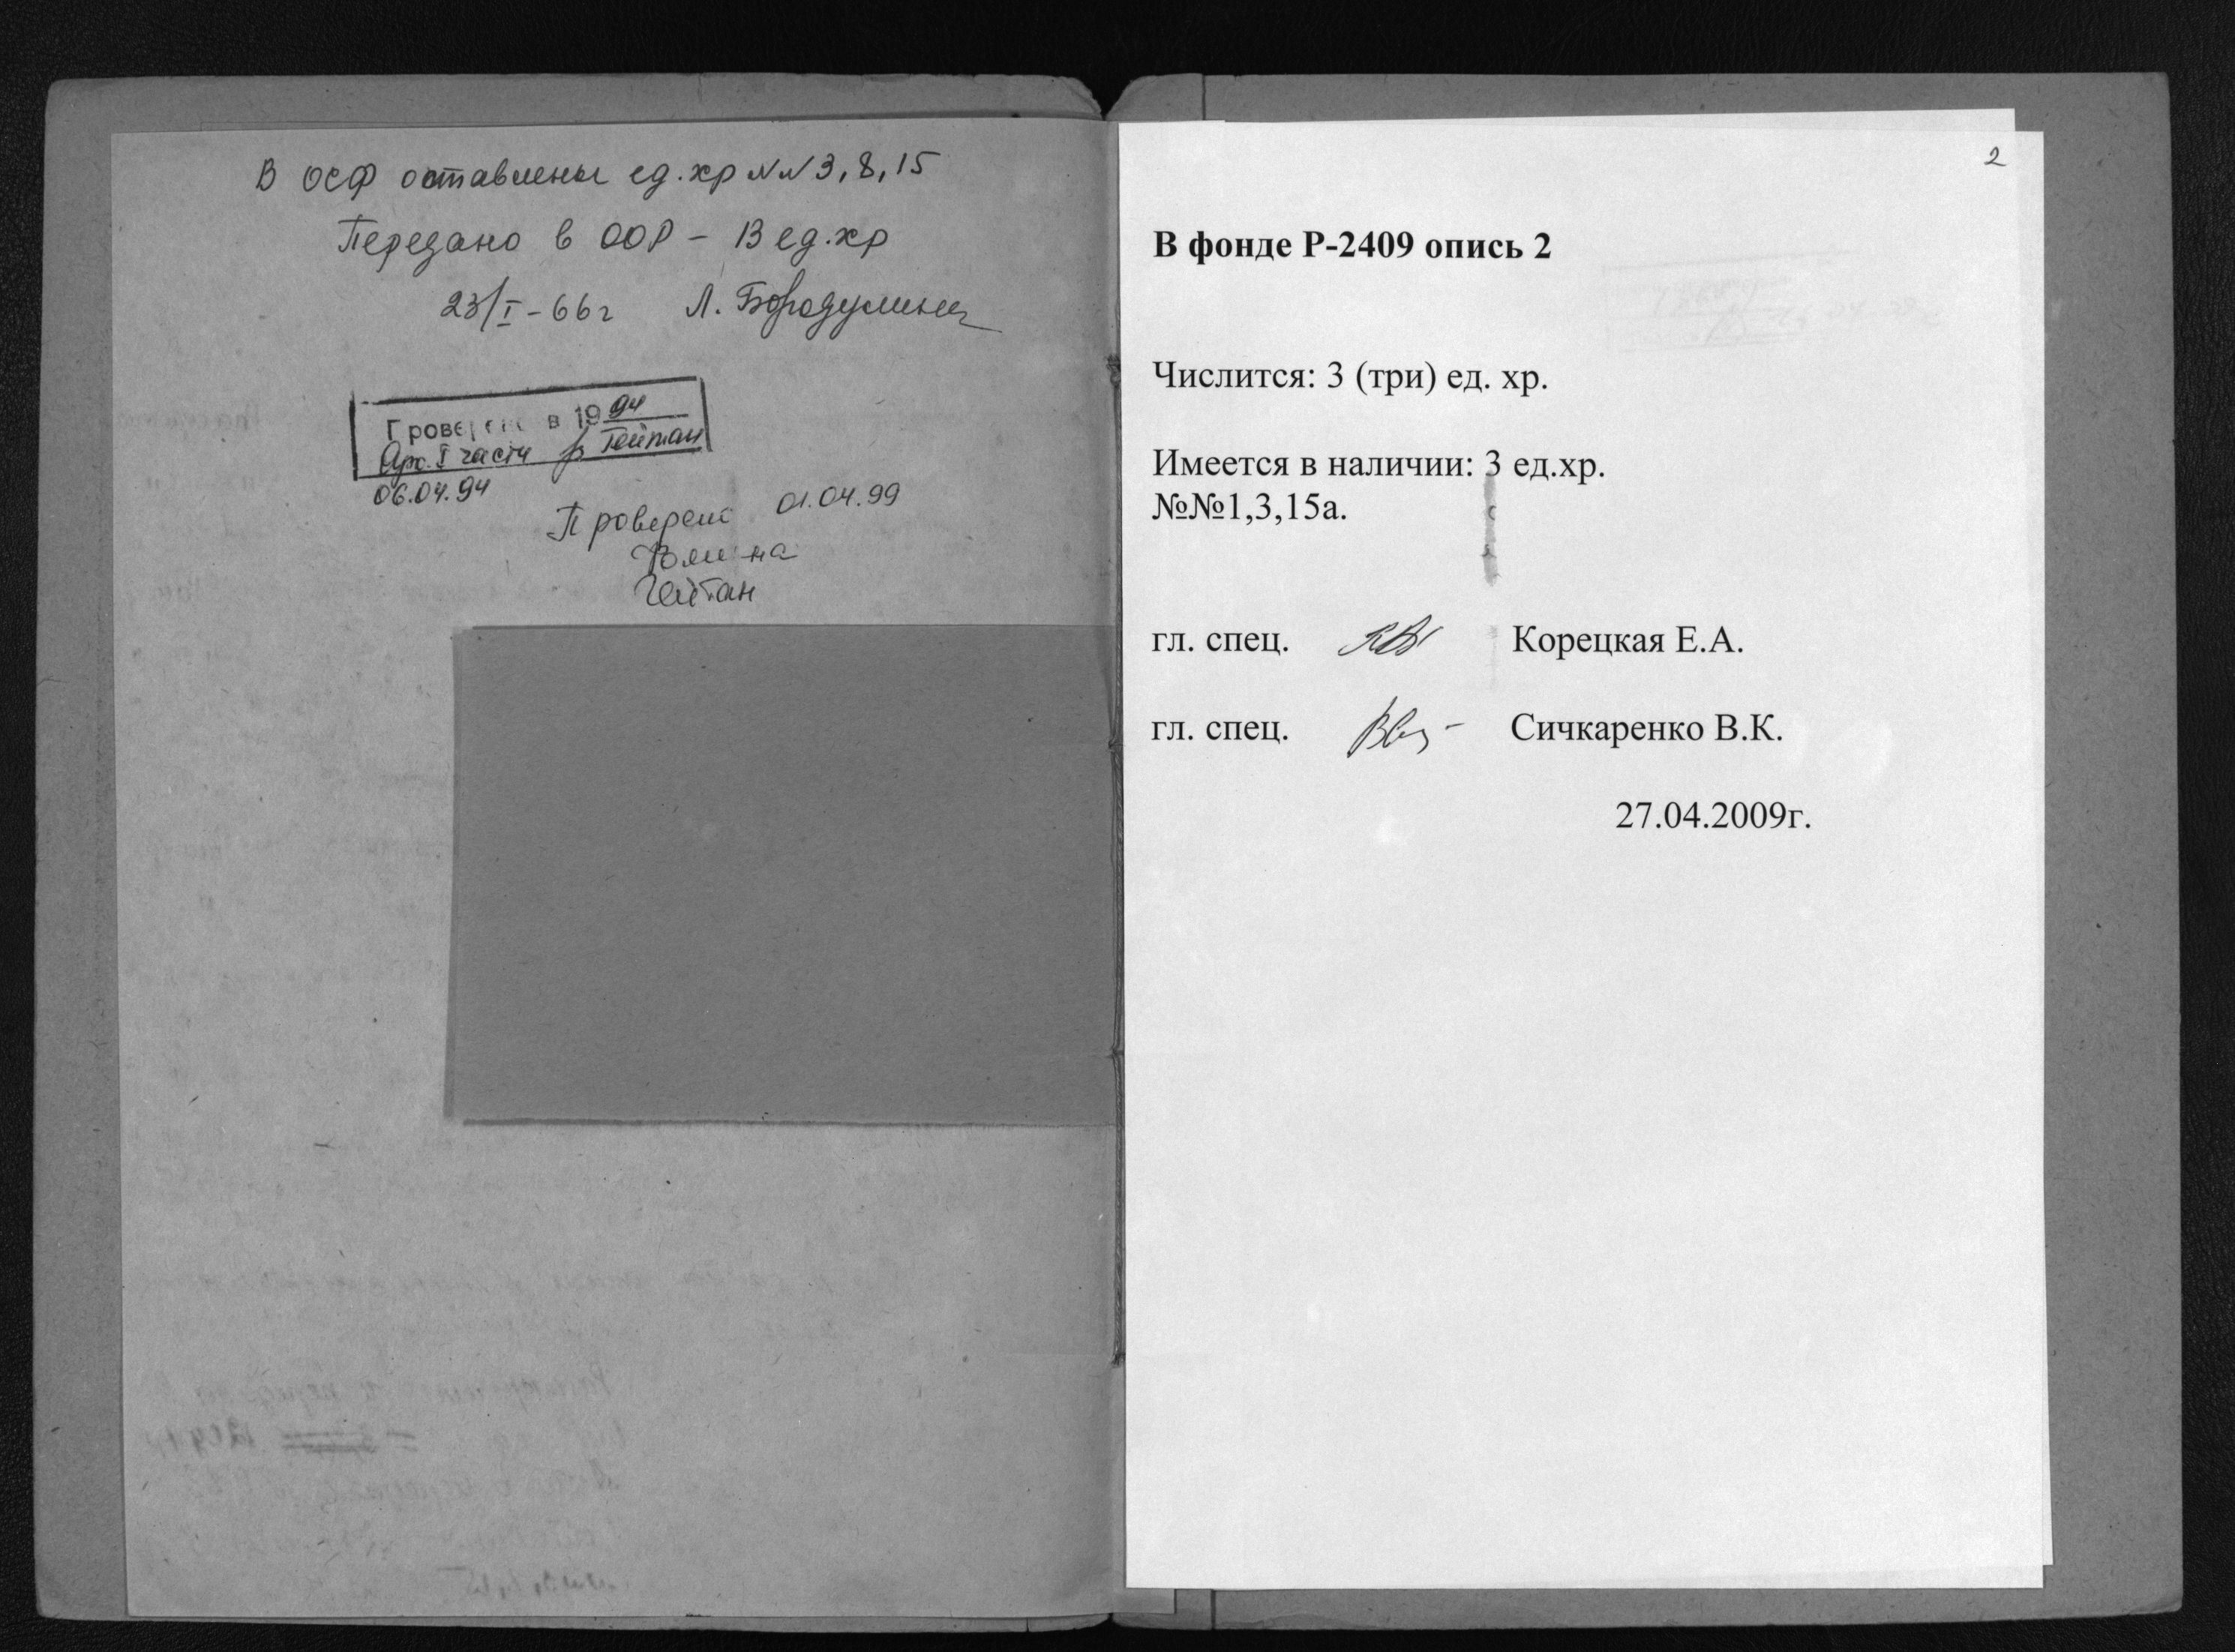 В ОСФ оставлены ед.хр №№ 3, 8, 15
Передано в ООР – 13 ед.хр
23/I-66г Л. Бородулина
Проверено в 1994
Арх. I части Гейтан
06.04.94
Проверено 01.04.99
Гейтан
2
В фонде Р-2409 опись 2
Числится: 3 (три) ед. хр.
Имеется в наличии: 3 ед.хр.
№№1,3,15а.
гл. спец. Корецкая Е.А.
гл. спец. Сичкаренко В.К.
27.04.2009г.